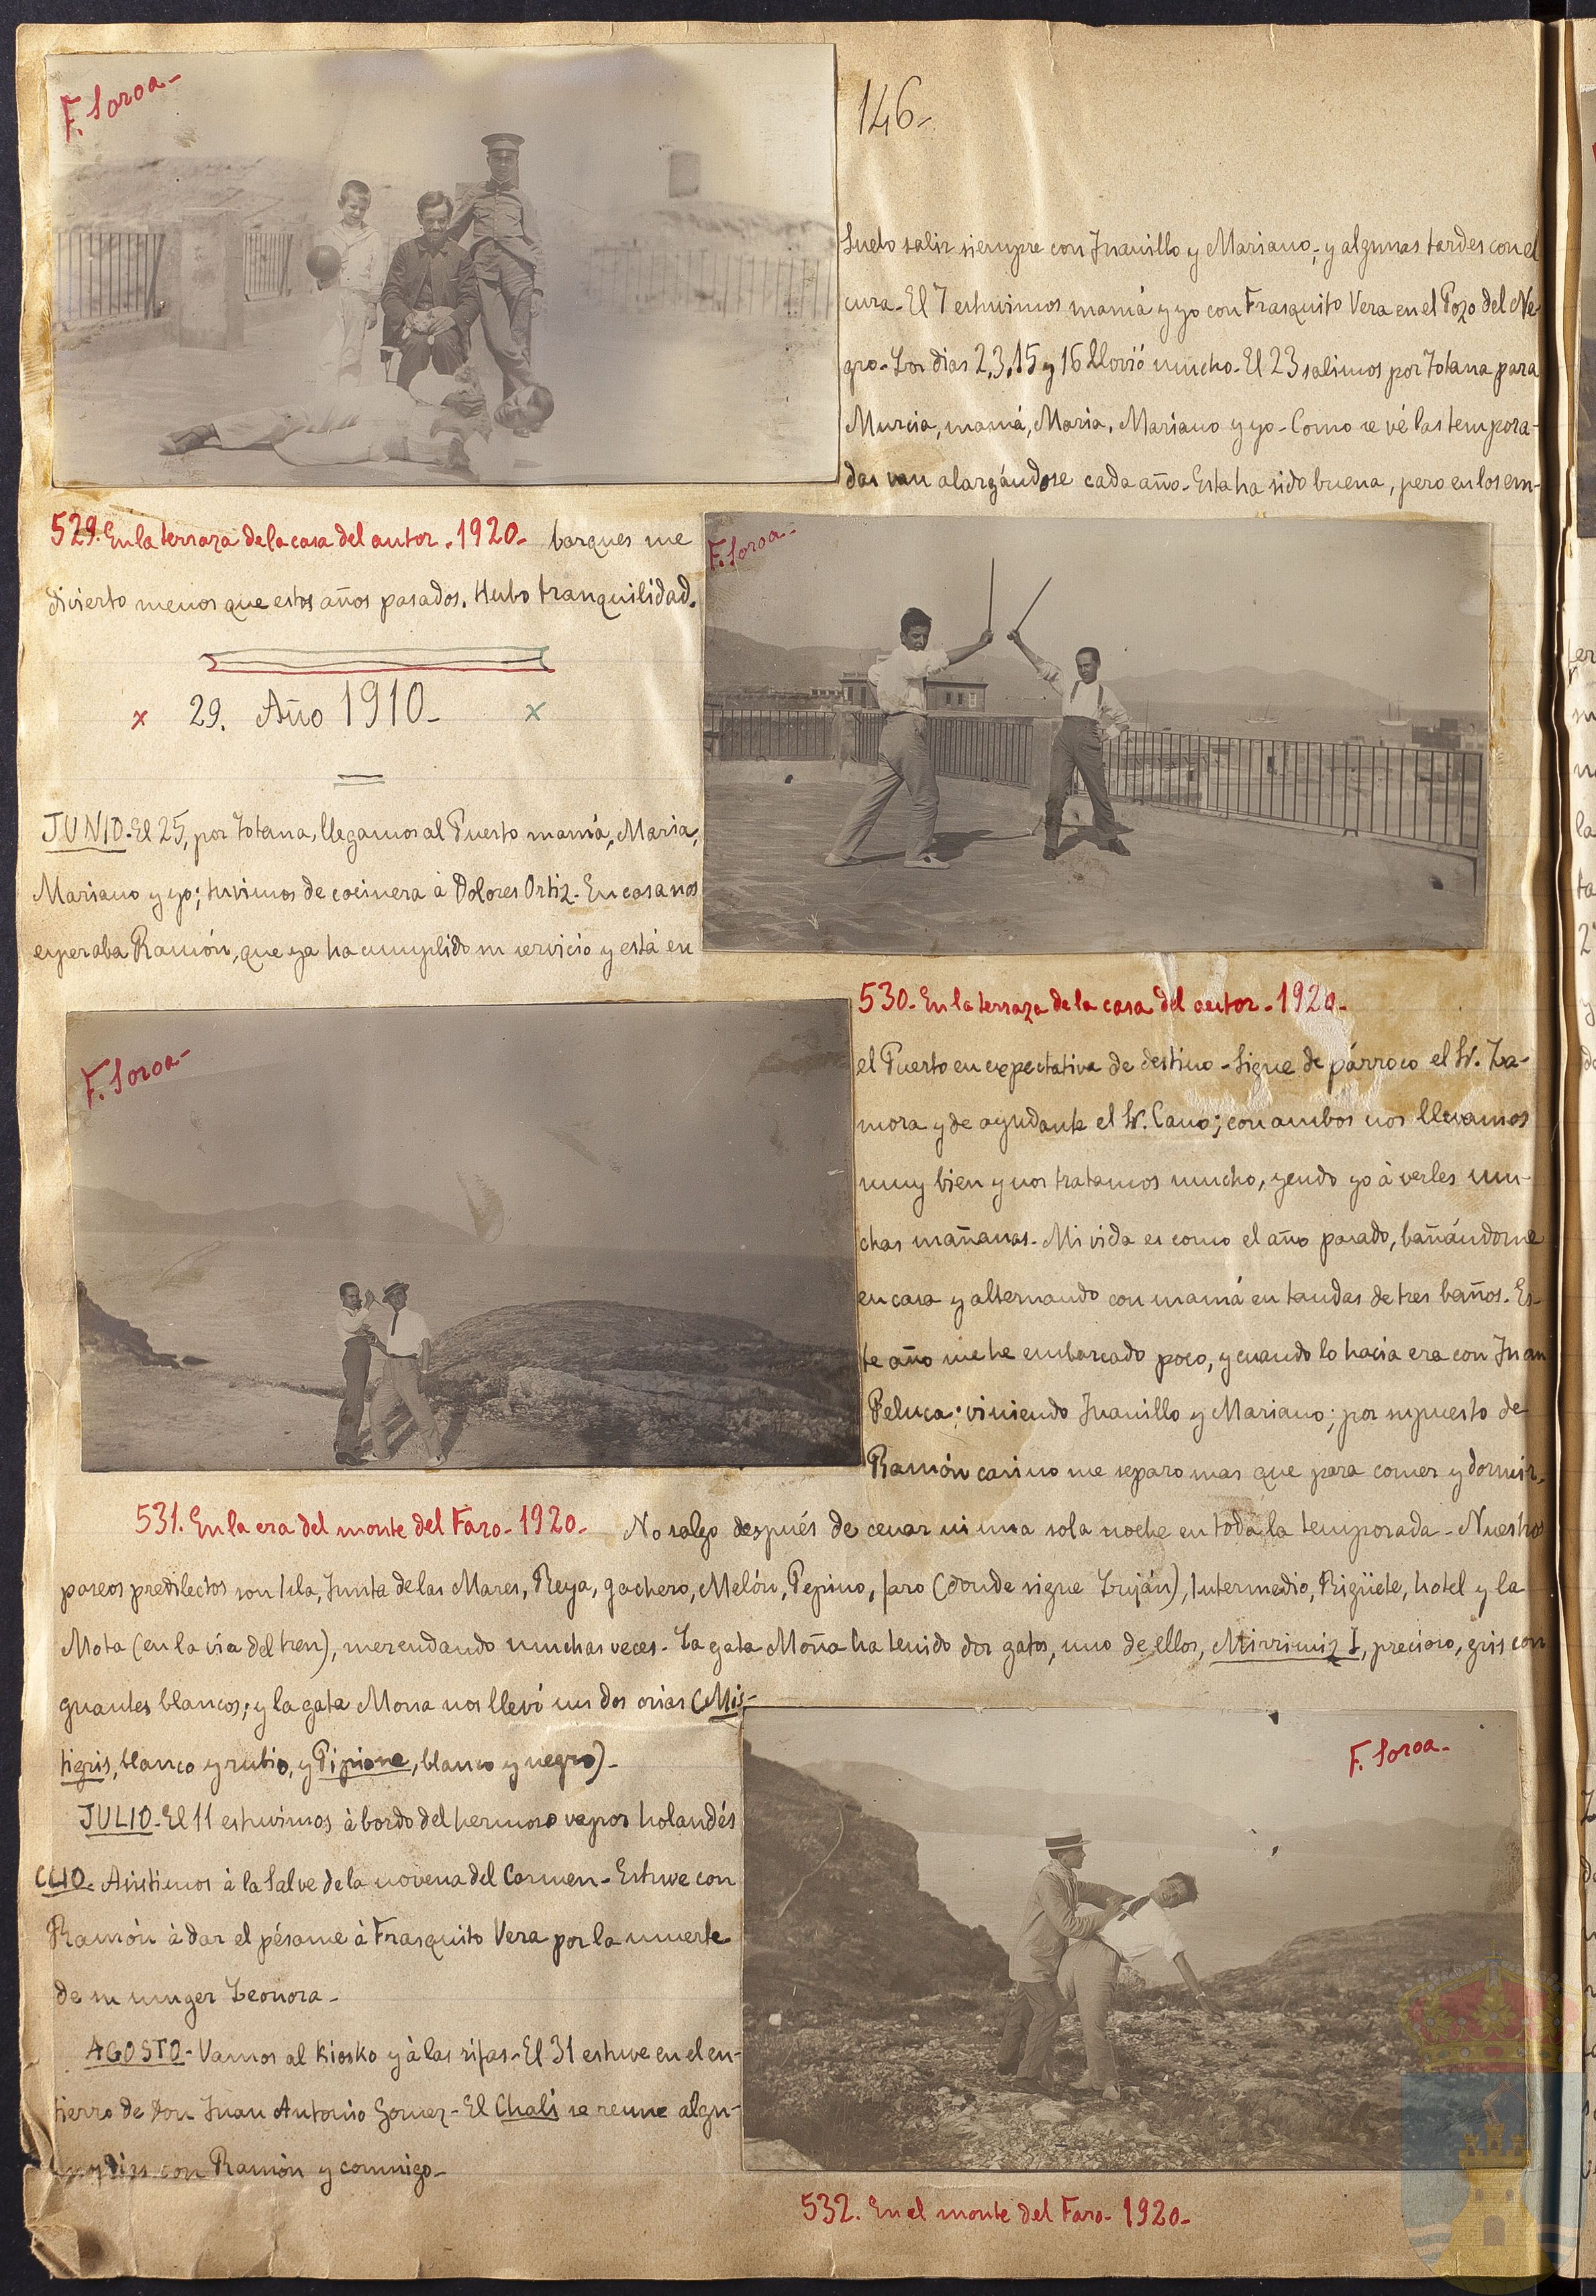 F. Soroa-
146-
Suelo salir siempre con Juanillo y Mariano; y algunas tardes con el
cura- El 7 estuvimos mamá y yo con Frasquito Vera en el Pozo del Ne-
gro- Los dias 2, 3, 15 y 16 llovió mucho- El 23 salimos por Totana para
Murcia, mamá, Maria, Mariano y yo- Como se vé las tempora-
das van alargándose cada año- Esta ha sido buena, pero en los em-
529. En la terraza de la casa del autor- 1920- barques me
divierto menos que estos años pasados. Hubo tranquilidad.
F. Soroa-
x 29. Año 1910- x
JUNIO- El 25, por Totana, llegamos al Puerto mamá, Maria,
Mariano y yo; tuvimos de cocinera á Dolores Ortiz- En casa nos
esperaba Ramón, que ya ha cumplido su servicio y está en
530- En la terraza de la casa del autor- 1920-
F. Soroa-
el Puerto en expectativa de destino- Sigue de párroco el Sr. Za-
mora y de ayudante el Sr. Cano; con ambos nos llevamos
muy bien y nos tratamos mucho, yendo yo á verles mu-
chas mañanas- Mi vida es como el año pasado, bañándome
en casa y alternando con mamá en tandas de tres baños- Es-
te año me he embarcado poco, y cuando lo hacia era con Juan
Peluca; viniendo Juanillo y Mariano; por supuesto de
Ramón casi no me separo mas que para comer y dormir.
531. En la era del monte del Faro- 1920- No salgo después de cenar ni una sola noche en toda la temporada- Nuestros
paseos predilectos son Isla, Junta de las Mares, Reya, Gachero, Melón, Pepino, faro (donde sigue Luján), Intermedio, Rigüete, hotel y la
Mota (en la via del tren), merendando muchas veces- La gata Moña ha tenido dos gatos, uno de ellos, Mirrimiz I, precioso, gris con
guantes blancos; y la gata Mona nos llevó sus dos crias (Mis-
tigris, blanco y rubio, y Pipione, blanco y negro)-
F. Soroa-
JULIO- El 11 estuvimos á bordo del hermoso vapor holandés
CLIO- Asistimos á la Salve de la novena del Carmen- Estuve con
Ramón á dar el pésame á Frasquito Vera por la muerte
de su muger Leonora-
AGOSTO- Vamos al kiosko y á las rifas- El 31 estuve en el en-
tierro de don Juan Antonio Gomez- El Chali se reune algu-
dias con Ramón y conmigo-
532. En el monte del Faro- 1920-